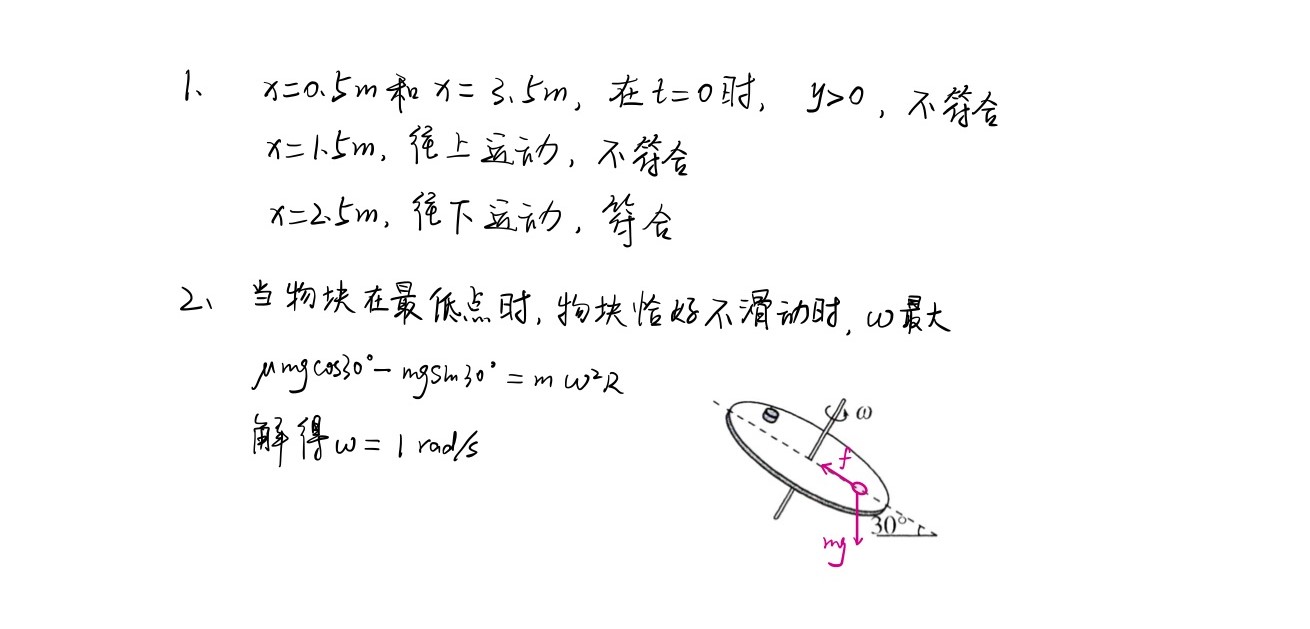 1、 x=0.5m和 x=3.5m, 在t=0时, y>0, 不符合
x=1.5m, 往上运动, 不符合
x=2.5m, 往下运动, 符合
2、 当物块在最低点时, 物块恰好不滑动时, ω最大
μmgcos30°-mgsin30°=mω²R
解得ω=1rad/s
ω
f
30°
mg